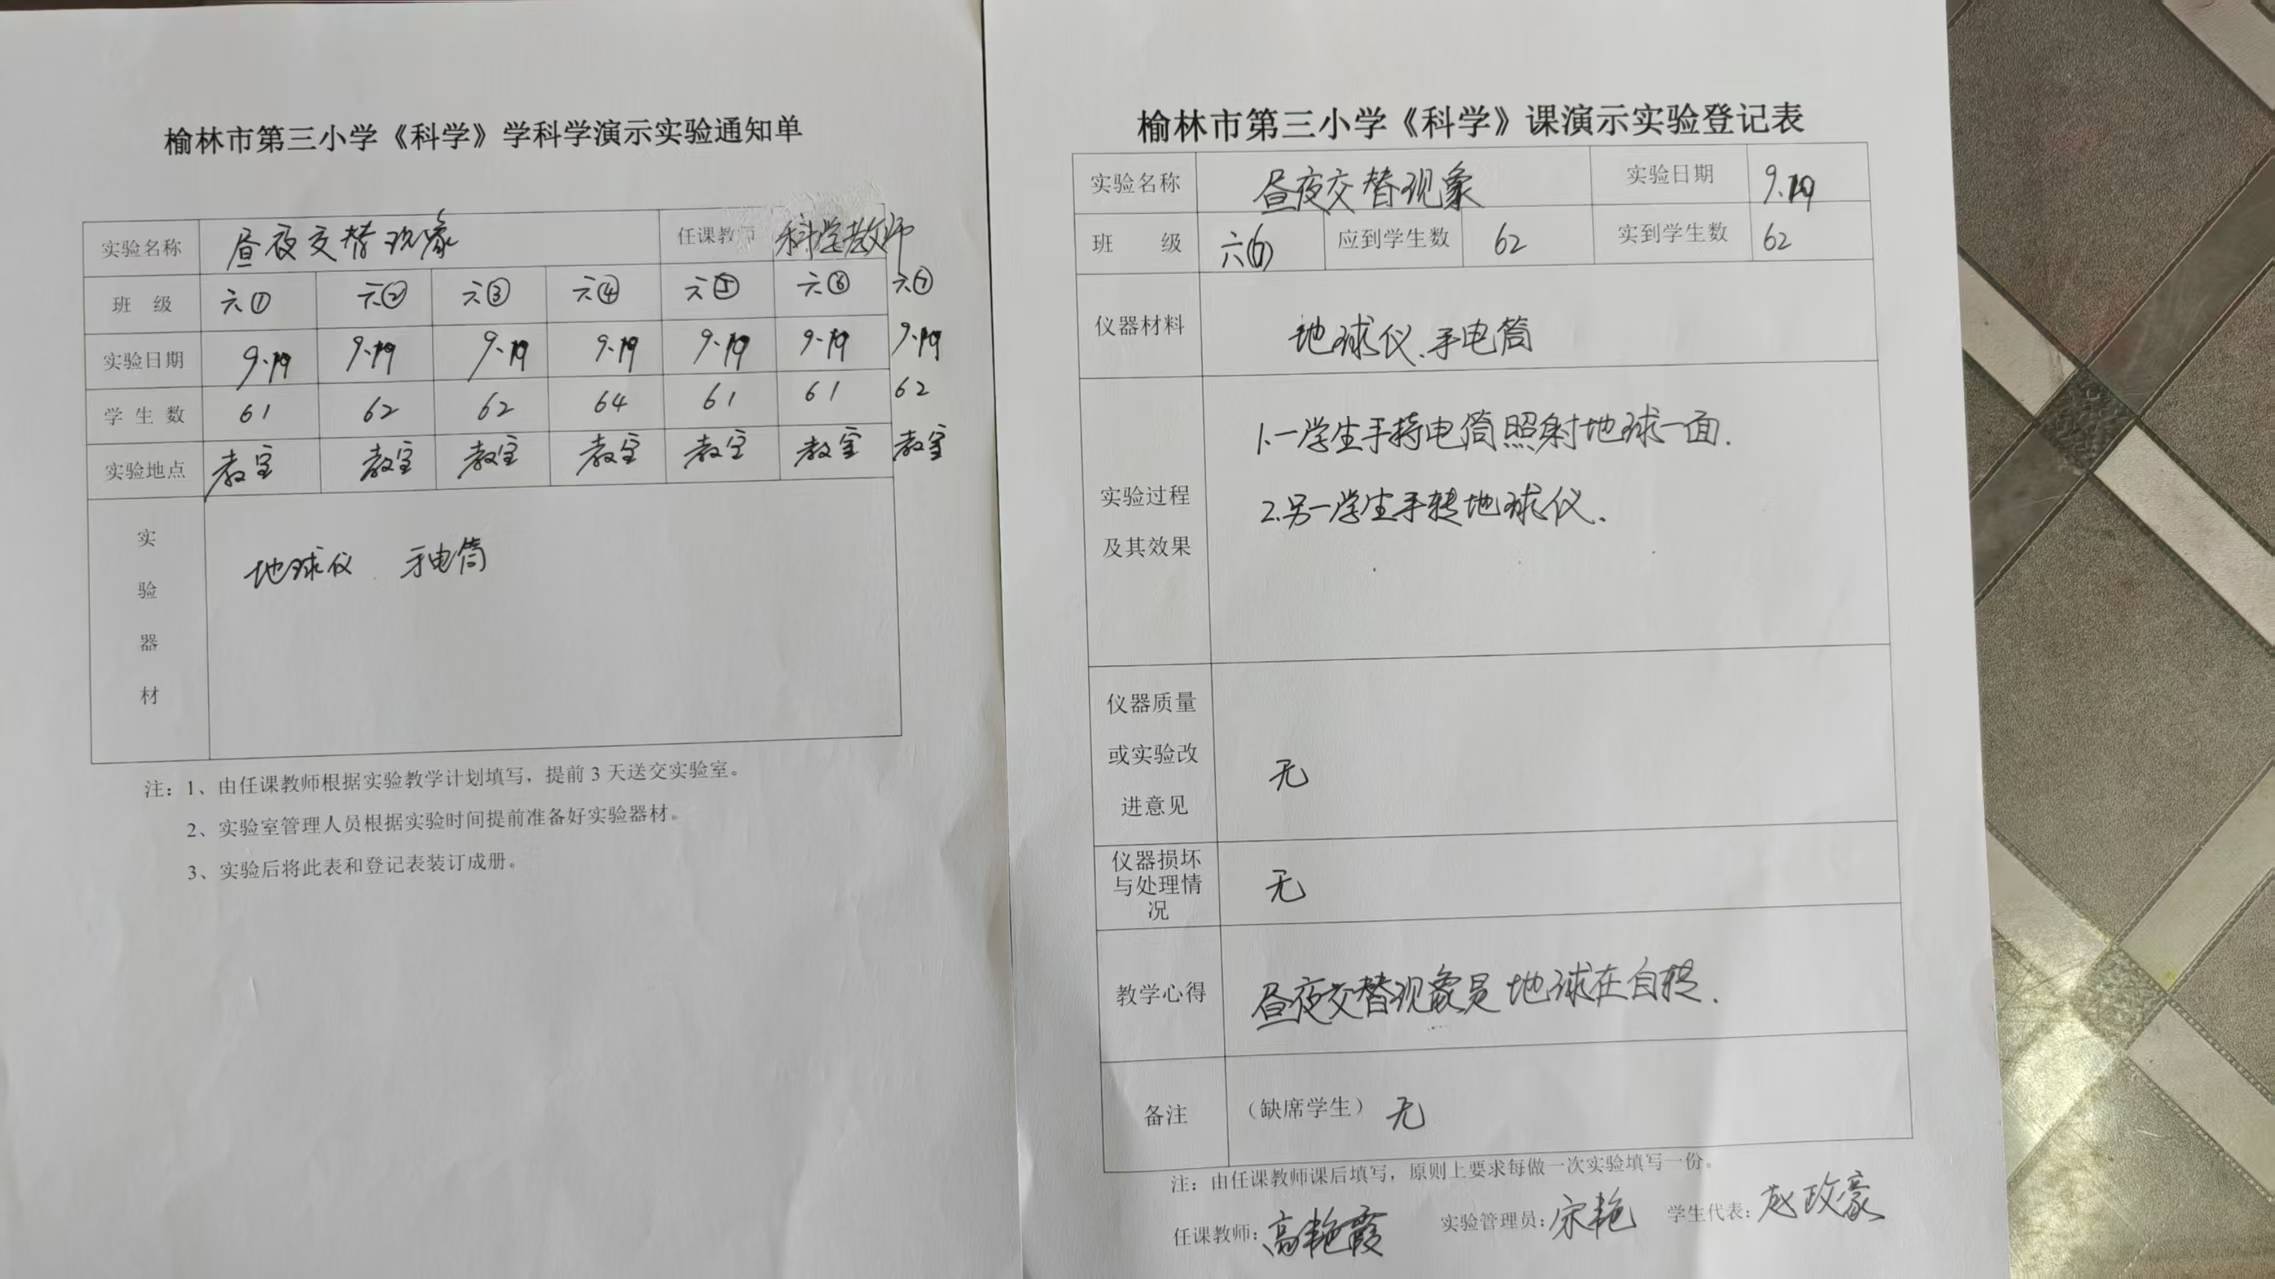 榆林市第三小学《科学》学科学演示实验通知单
实验名称 昼夜交替现象 任课教师 科学教师
班 级 六① 六② 六③ 六④ 六⑤ 六⑥ 六⑦
实验日期 9.19 9.19 9.19 9.19 9.19 9.19 9.19
学 生 数 61 62 62 64 61 61 62
实验地点 教室 教室 教室 教室 教室 教室 教室
实
验
器
材
地球仪 手电筒
注：1、由任课教师根据实验教学计划填写，提前 3 天送交实验室。
2、实验室管理人员根据实验时间提前准备好实验器材。
3、实验后将此表和登记表装订成册。
榆林市第三小学《科学》课演示实验登记表
实验名称 昼夜交替现象 实验日期 9.19
班 级 应到学生数 62 实到学生数 62
仪器材料 地球仪、手电筒
实验过程
及其效果
1.一学生手持电筒照射地球一面.
2.另一学生手转地球仪.
仪器质量
或实验改
进意见
无
仪器损坏
与处理情
况
无
教学心得 昼夜交替现象是地球在自转.
备注 （缺席学生） 无
注：由任课教师课后填写，原则上要求每做一次实验填写一份。
任课教师：高艳霞 实验管理员：宋艳 学生代表：赵政豪